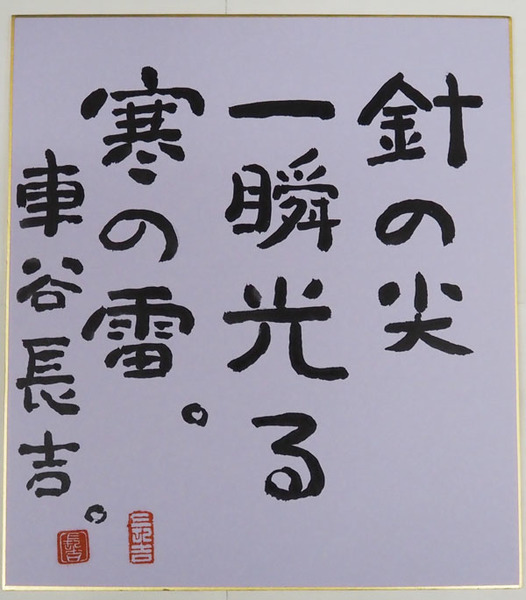 針の尖
一瞬光る
寒の雷。
車谷長吉。
長吉